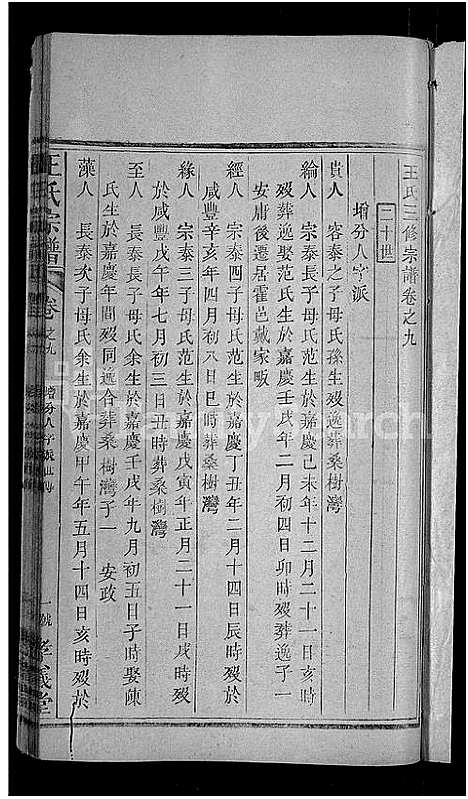 王氏三修宗譜卷之九
二十世
增分人字派
貴人 容泰之子母氏孫生歿逸葬桑樹灣
綸人 宗泰長子母氏范生於嘉慶己未年十二月二十一日亥時
歿葬逸娶范氏生於嘉慶壬戌年二月初四日卯時歿葬逸子一
安庸後遷居霍邑戴家畈
經人 宗泰四子母氏范生於嘉慶丁丑年二月十四日辰時歿於
咸豐辛亥年四月初八日巳時葬桑樹灣
緣人 宗泰三子母氏范生於嘉慶戊寅年正月二十一日戌時歿
於咸豐戊午年七月初三日丑時葬桑樹灣
至人 長泰長子母氏余生於嘉慶壬戌年九月初五日子時娶陳
氏生於嘉慶年間歿同逸合葬桑樹灣子一 安政
藻人 長泰次子母氏余生於嘉慶甲午年五月十四日亥時歿於
王氏宗譜 卷之九 增分人字派 一號 孝義堂